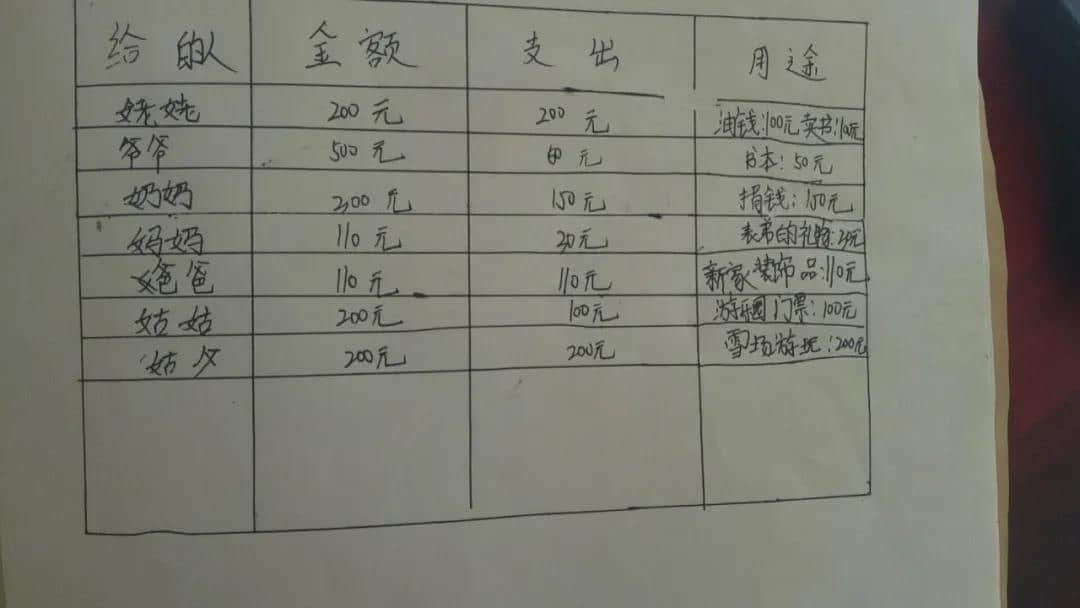 给的人 金额 支出 用途
姥姥 200元 200元 油钱:100元 卖书:100元
爷爷 500元 元 书本:50元
奶奶 200元 150元 捐钱:150元
妈妈 110元 20元 表弟的礼物:20元
爸爸 110元 110元 新家装饰品:110元
姑姑 200元 100元 游乐园门票:100元
姑夕 200元 200元 雪场游玩:200元